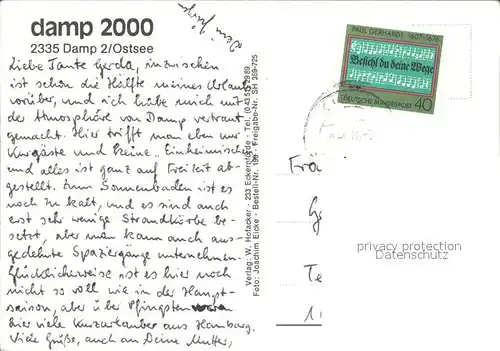 damp 2000
2335 Damp 2/Ostsee
Liebe Tante Gerda, inzwischen
ist schon die Hälfte meines Urlaubs
vorüber, und ich habe mich mit
der Atmosphäre von Damp vertraut
gemacht. Hier trifft man eben nur
Kurgäste und keine „Einheimischen"
und alles ist ganz auf Freizeit ab-
gestellt. Zum Sonnenbaden ist es
noch zu kalt, und es sind auch
erst sehr wenige Strandkörbe be-
setzt, aber man kann auch aus-
gedehnte Spaziergänge unternehmen.
Glücklicherweise ist es hier noch
nicht so voll wie in der Haupt-
saison, aber über Pfingsten waren
hier viele Kurzurlauber aus Hamburg.
Viele Grüße, auch an Deine Mutter,
Dein
Verlag: W. Hofacker - 233 Eckernförde - Tel. (0 43 51) 29 89
Foto: Joachim Eicke - Bestell-Nr. 199 - Freigabe-Nr. SH 309-725
PAUL GERHARDT 1607-1676
Befiehl du deine Wege
DEUTSCHE BUNDESPOST 40
privacy protection
Datenschutz